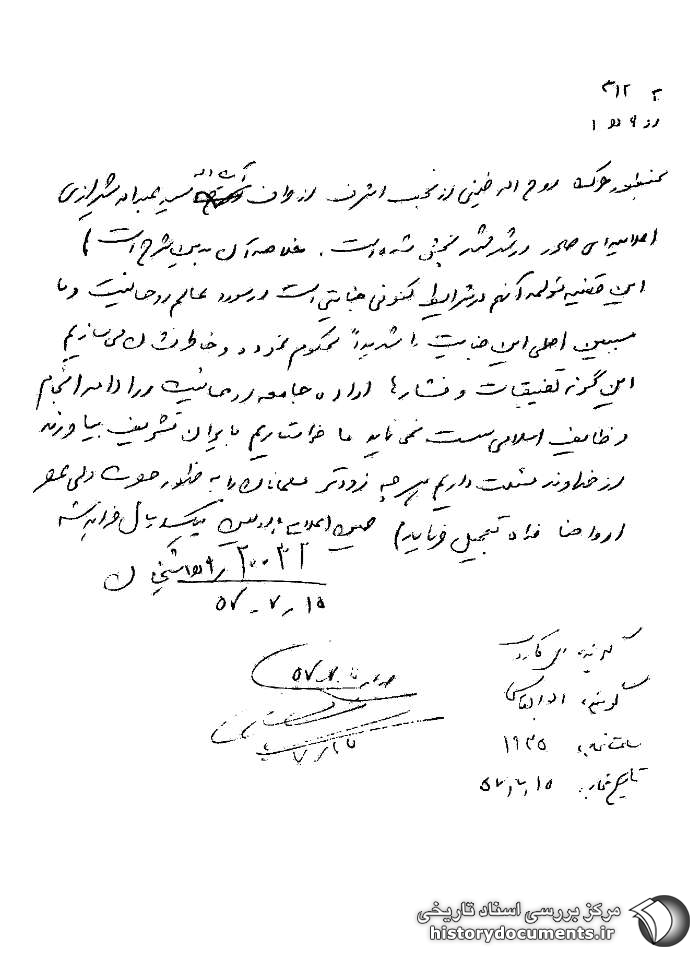 به ۳۱۲
از ۹ ه‍ ۱
بمنظور حرکت روح اله خمینی از نجف اشرف از طرف آیت اله سید عبداله شیرازی
اعلامیه ای صادر و در مشهد پخش شده است . خلاصه آن بدین شرح است (
این قضیه مولمه آنهم در شرایط کنونی جنایتی است در مورد عالم روحانیت و ما
مسببین اصلی این جنایت را شدیداً محکوم نموده و خاطرنشان می سازیم
این گونه تضییقات و فشارها اراده جامعه روحانیت را در ادامه انجام
وظایف اسلامی سست نمی نماید ما خواستاریم بایران تشریف بیاورند
از خداوند مسئلت داریم هر چه زودتر مسلمانان را به ظهور حضرت ولی عصر
ارواحنا فداه تعجیل فرماید) ضمن اعلامیه
۲۰۰۳۲ / ۹ ه‍ ۱
۵۷-۷-۱۵
گیرنده
گوینده
ساعت مخابره ۱۹۳۵
تاریخ مخابره ۵۷٫۷٫۱۵
۵۷
مرکز بررسی اسناد تاریخی
historydocuments.ir